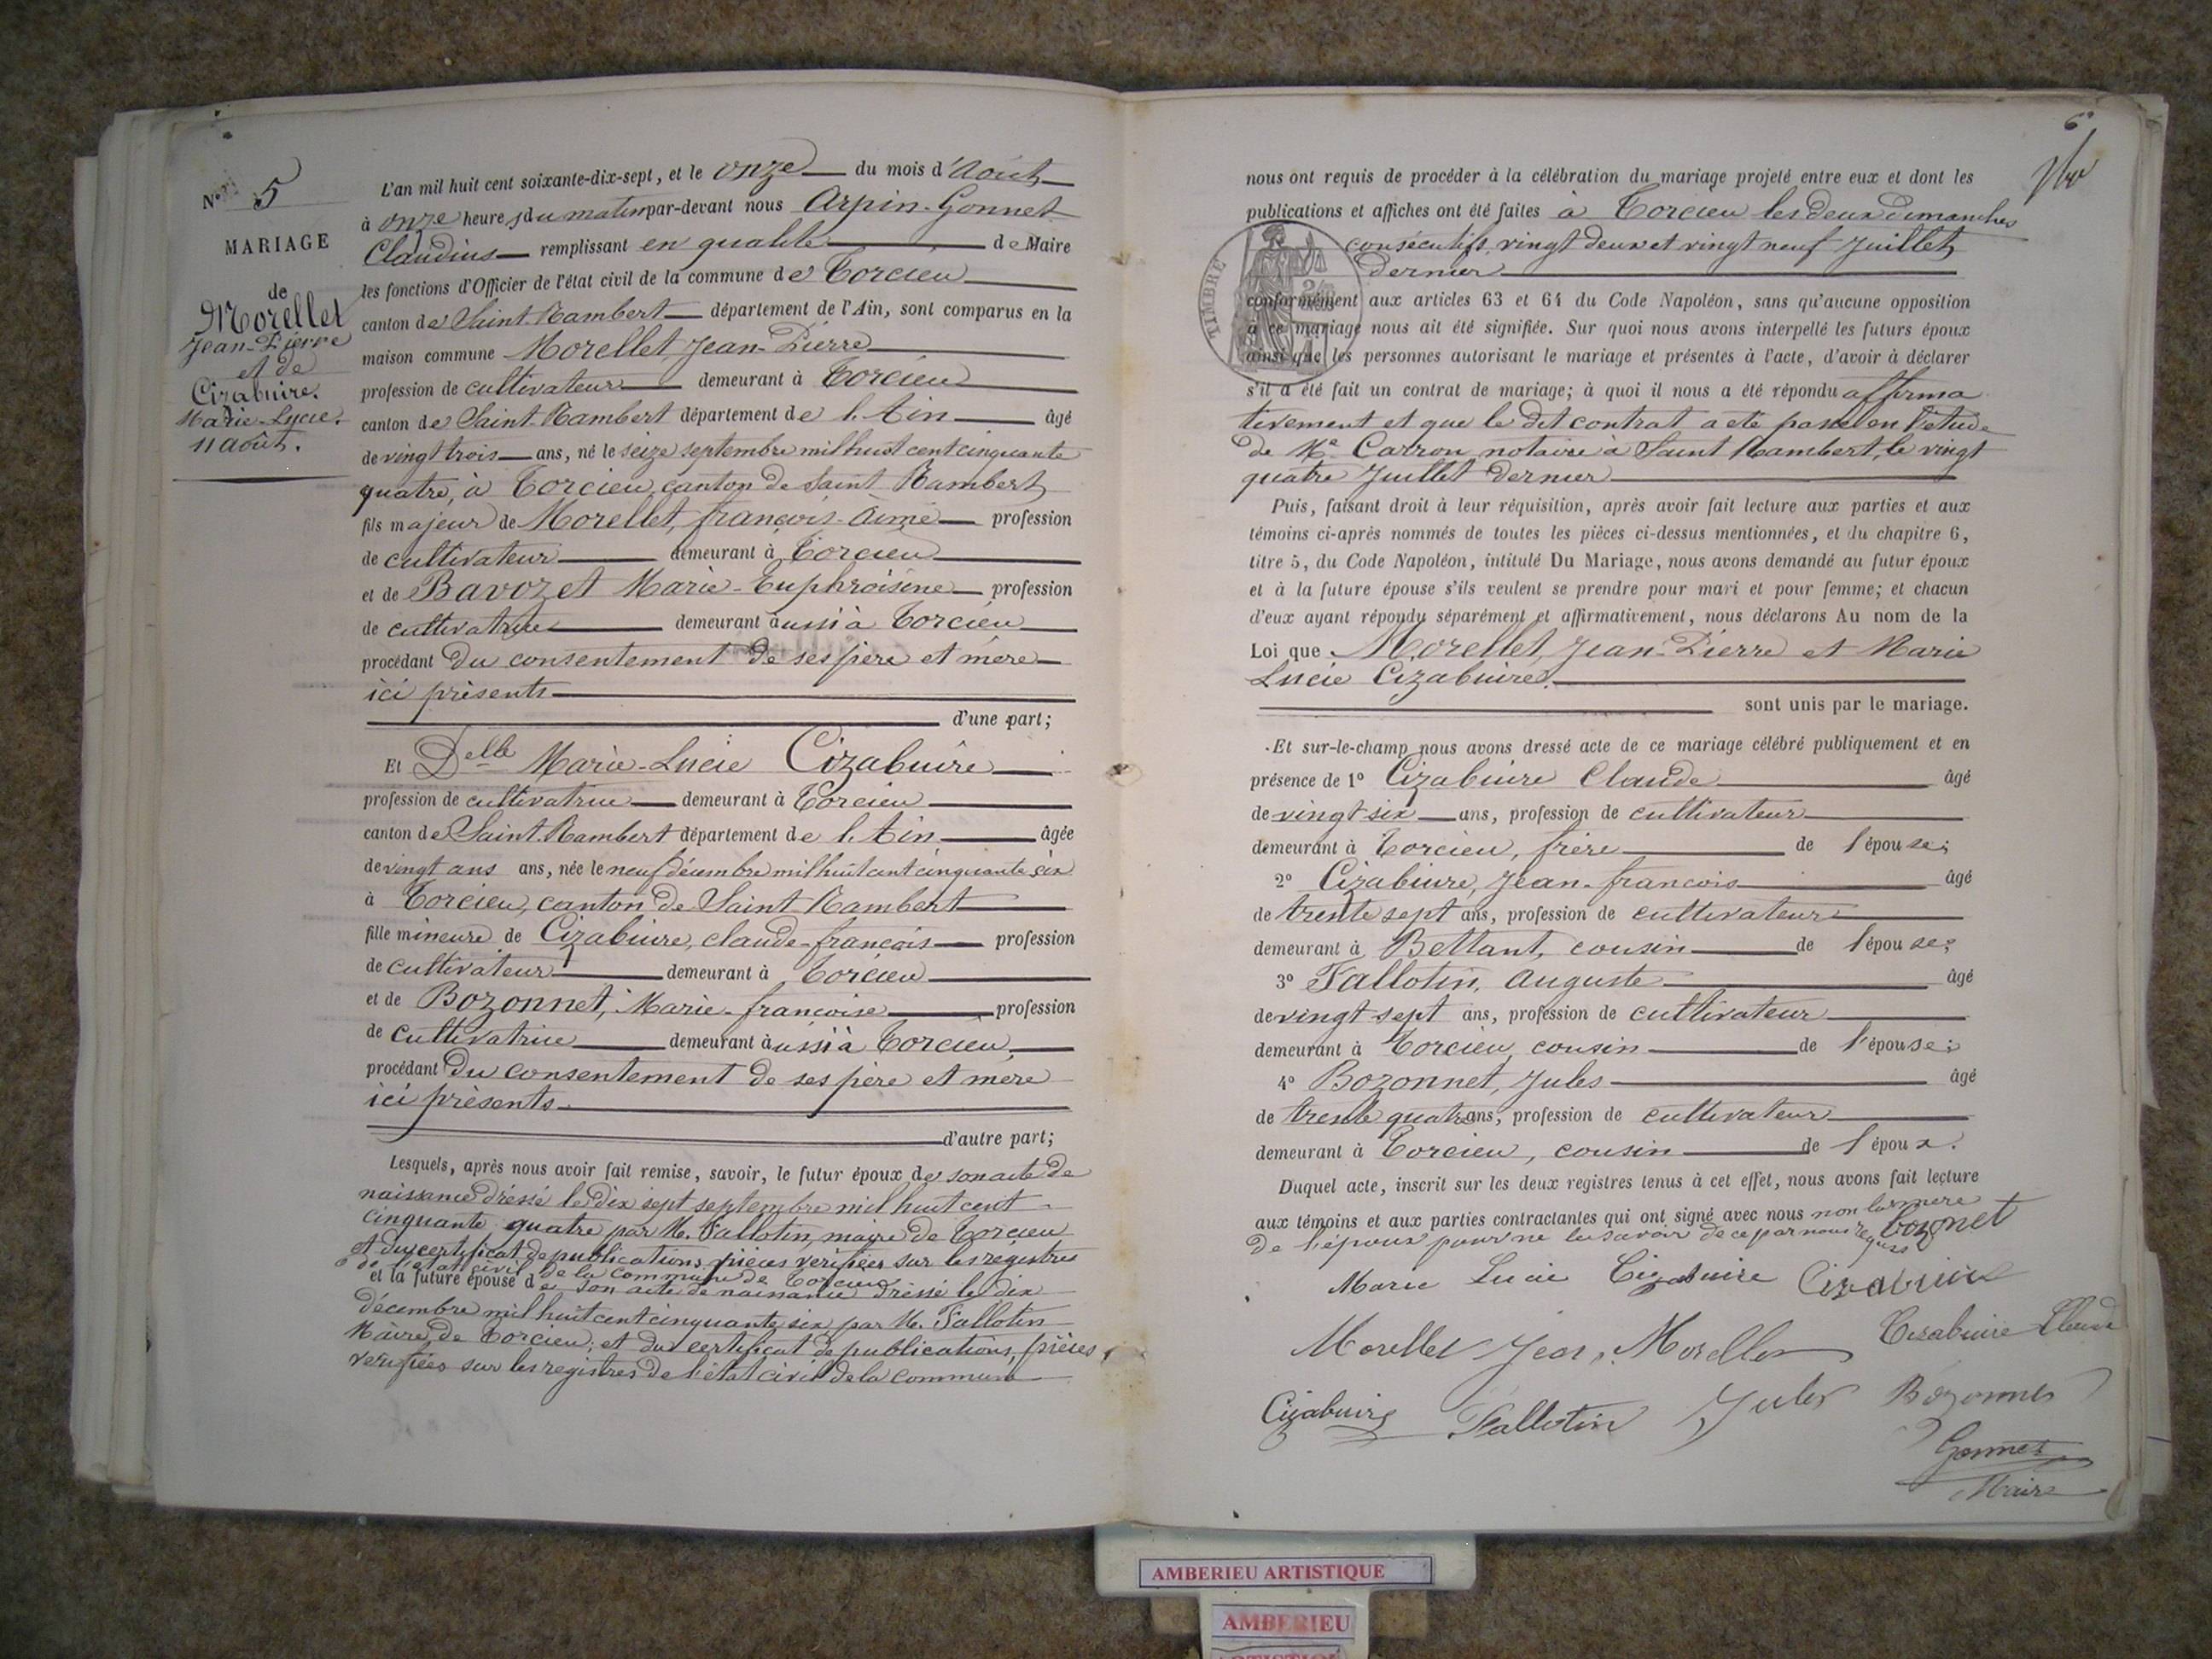 N° 5
MARIAGE
de
Morellet
Jean-Pierre
et de
Cizabuire.
Marie-Lucie.
11 août.
L'an mil huit cent soixante-dix-sept, et le onze du mois d'Août
à onze heures du matin par-devant nous Arpin-Gonnet
Claudius remplissant en qualité de Maire
les fonctions d'Officier de l'état civil de la commune de Torcieu
canton de Saint-Rambert département de l'Ain, sont comparus en la
maison commune Morellet, Jean-Pierre
profession de cultivateur demeurant à Torcieu
canton de Saint-Rambert département de l'Ain âgé
de vingt trois ans, né le seize septembre mil huit cent cinquante
quatre, à Torcieu, canton de Saint Rambert
fils majeur de Morellet, françois-Aimé profession
de cultivateur demeurant à Torcieu
et de Bavozet Marie-Euphroisine profession
de cultivatrice demeurant aussi à Torcieu
procédant du consentement de ses père et mère
ici présents
d'une part;
Et Delle Marie-Lucie Cizabuire
profession de cultivatrice demeurant à Torcieu
canton de Saint-Rambert département de l'Ain âgée
de vingt ans ans, née le neuf décembre mil huit cent cinquante six
à Torcieu, canton de Saint-Rambert
fille mineure de Cizabuire, claude-françois profession
de cultivateur demeurant à Torcieu
et de Bozonnet, Marie-françoise profession
de cultivatrice demeurant aussi à Torcieu,
procédant du consentement de ses père et mère
ici présents
d'autre part;
Lesquels, après nous avoir fait remise, savoir, le futur époux de son acte de
naissance dressé le dix sept septembre mil huit cent
cinquante quatre par M. Tallotin, maire de Torcieu
et du certificat de publications, pièces vérifiées sur les registres
de l'état civil de la commune de Torcieu
et la future épouse de son acte de naissance dressé le dix
décembre mil huit cent cinquante six par M. Tallotin
Maire de Torcieu; et du certificat de publications, pièces
vérifiées sur les registres de l'état civil de la commune
6
nous ont requis de procéder à la célébration du mariage projeté entre eux et dont les
publications et affiches ont été faites à Torcieu les deux dimanches
consécutifs, vingt deux et vingt neuf Juillet
dernier
TIMBRE
conformément aux articles 63 et 64 du Code Napoléon, sans qu'aucune opposition
à ce mariage nous ait été signifiée. Sur quoi nous avons interpellé les futurs époux
ainsi que les personnes autorisant le mariage et présentes à l'acte, d'avoir à déclarer
s'il a été fait un contrat de mariage; à quoi il nous a été répondu affirma
tivement et que le dit contrat a été passé en l'étude
de Me Carron notaire à Saint Rambert, le vingt
quatre Juillet dernier
Puis, faisant droit à leur réquisition, après avoir fait lecture aux parties et aux
témoins ci-après nommés de toutes les pièces ci-dessus mentionnées, et du chapitre 6,
titre 5, du Code Napoléon, intitulé Du Mariage, nous avons demandé au futur époux
et à la future épouse s'ils veulent se prendre pour mari et pour femme; et chacun
d'eux ayant répondu séparément et affirmativement, nous déclarons Au nom de la
Loi que Morellet, Jean-Pierre et Marie
Lucie Cizabuire
sont unis par le mariage.
Et sur-le-champ nous avons dressé acte de ce mariage célébré publiquement et en
présence de 1° Cizabuire Claude âgé
de vingt-six ans, profession de cultivateur
demeurant à Torcieu, frère de l'épouse;
2° Cizabuire, Jean-françois âgé
de trente sept ans, profession de cultivateur
demeurant à Bettant, cousin de l'épouse;
3° Tallotin, Auguste âgé
de vingt-sept ans, profession de cultivateur
demeurant à Torcieu, cousin de l'épouse;
4° Bozonnet, Jules âgé
de trente quatre ans, profession de cultivateur
demeurant à Torcieu, cousin de l'époux.
Duquel acte, inscrit sur les deux registres tenus à cet effet, nous avons fait lecture
aux témoins et aux parties contractantes qui ont signé avec nous non la mère
de l'époux pour ne le savoir de ce par nous requis bozonet
Marie Lucie Cizabuire Cizabuire
Morellet Jean, Morellet Cizabuire Claude
Cizabuire Tallotin Jules Bozonnet
Gonnet
Maire
AMBERIEU ARTISTIQUE
AMBERIEU
ARTISTIQUE